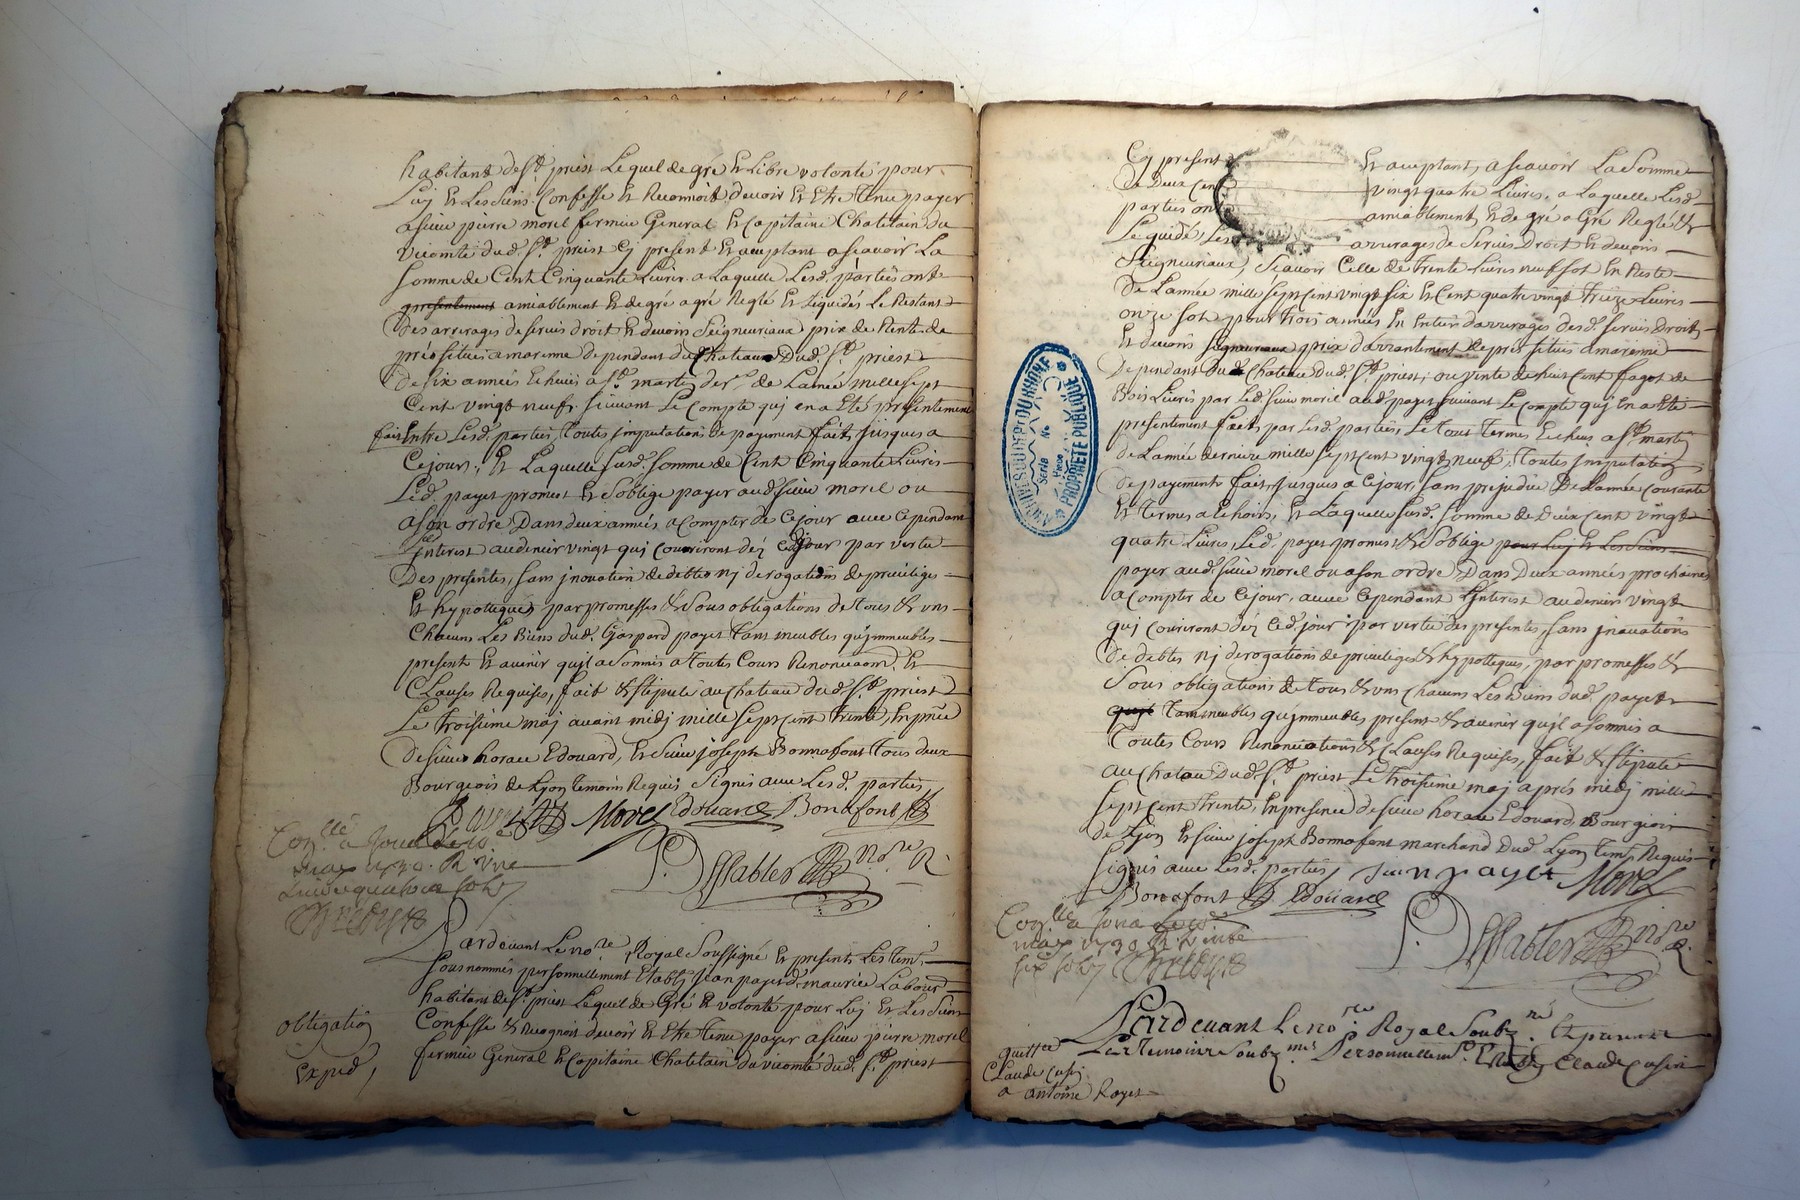 habitant de St. priest Lequel de gré Et Libre volonté pour
Luy Et Les Siens Confesse Et Reconnoit devoir Et Etre Tenu payer
a sieur pierre morel fermier General Et Capitaine Chatelain du
vicomté dud. St. priest Cy present Et aceptant a scavoir La
Somme de Cent Cinquante Livres a Laquelle Lesd. parties ont
presentement amiablement Et de gré a gré Reglé Et Liquidés Le Restant
Des arrerages de servis droit Et devoirs Seigneuriaux prix de Rente de
prés situés a marenne dependant du Chateau Dud. St. priest
de six années Echuës a St. martin der.re de Lannée mille sept
Cent vingt neuf, suivant Le Compte quj en a Eté presentement
fait Entre Lesd. parties, Toutes jmputations de payement fait jusques a
Ce jour, Et Laquelle susd. Somme de Cent Cinquante Livres
Led. payet promet Et S'oblige payer aud. sieur morel ou
a son ordre Dans deux années a Compter de Ce jour avec Cependant
Linterest au denier vingt quj Couriront dez Ced. jour par vertu
Des presentes, sans jnovation de debtes nj derogations de privileges
Et hypotteques par promesses & Sous obligations de tous & uns
Chacuns Les Biens dud. Gaspard payet Tant meubles qu'jmmeubles
present Et avenir qu'jl a Soumis a Toutes Cours Renonciaons. Et
Clauses Requises, fait & stipulé au Chateau dud. St. priest
Le Troisieme maj avant midj mille Sept Cent Trente, En pnce
de sieur horace Edouard, Et sieur joseph Bonnafont Tous deux
Bourgeois de Lyon temoins Requis Signés avec Lesd. parties
Morel Edouard Bonafont
Con.llé a
may 1730. R
Livre quatre sols
Desabler no.re R.
Pardevant Le no.re Royal Soussigné Et presents Les Tem.
sousnommés personnellement Etably jean payet d. maurice Labour.
habitant de St. priest Lequel de Gré & volonté pour Luj Et Les Siens
Confesse & Recognoit devoir Et Etre Tenu payer a sieur pierre morel
fermier General Et Capitaine Chatelain du vicomté dud. St. priest
obligation
Exped.
Cy present Et aceptant, a scavoir La Somme
De Deux Cent vingt quatre Livres, a Laquelle Lesd.
parties ont amiablement Et de gré a Gré Reglé &
Liquidé, Les arrerages de Servis Droit Et devoirs
Seigneuriaux, Scavoir Celle de trente Livres neuf sols En Reste
De Lannée mille sept Cent vingt six Et Cent quatre vingt treize Livres
onze sols pour trois années En Entier d'arrerages desd. servis Droits
Et devoirs seigneuriaux prix d'arrantement de prés situés a marenne
Dependant du Chateau Dud. St. priest, ou vente de huit Cent fagot de
Bois Livrés par Led. sieur morel aud. payet suivant Le Compte quj En a Eté
presentement fait par Lesd. parties Le Tout Termes Echeus a St. martin
de Lannée derniere mille sept Cent vingt neuf, Toutes jmputations
de payements fait jusques a Ce jour, sans prejudice De Lannée Courante
Et Termes a Echoir, Et Laquelle susd. Somme de Deux Cent vingt
quatre Livres, Led. payet promet & S'oblige pour Luj Et Les Siens
payer aud. sieur morel ou a son ordre Dans Deux années prochaines
a Compter de Ce jour, avec Cependant L'jnterest au denier vingt
quj Couriront dez Ced. jour par vertu des presentes, sans jnovations
De debtes nj derogations de privileges & hypotteques, par promesses &
Sous obligations de tous & uns Chacuns Les biens dud. payet
Tant meubles qu'jmmeubles present & avenir qu'jl a soumis a
Toutes Cours Renonciations & Clauses Requises, fait & stipulé
au Chateau Dud. St. priest Le Troisieme maj après midj mille
Sept Cent Trente, En presence de sieur horace Edouard Bourgeois
de Lyon Et sieur joseph Bonnafont marchand Dud. Lyon tem. Requis
Signés avec Lesd. parties, jean payet Morel
Bonafont Edouard
Con.llé a
may 1730 R.
six sols
Desabler no.re R.
ARCHIVES DU DEPT DU RHONE
Serie
No
Piece
PROPRIETE PUBLIQUE
Pardevant Le no.re Royal Soubz.né Et presents
Les Temoins Soubz.més Personnellem.t Estably Claude Cusin
quittce
Claude Cusin
a antoine Rayet